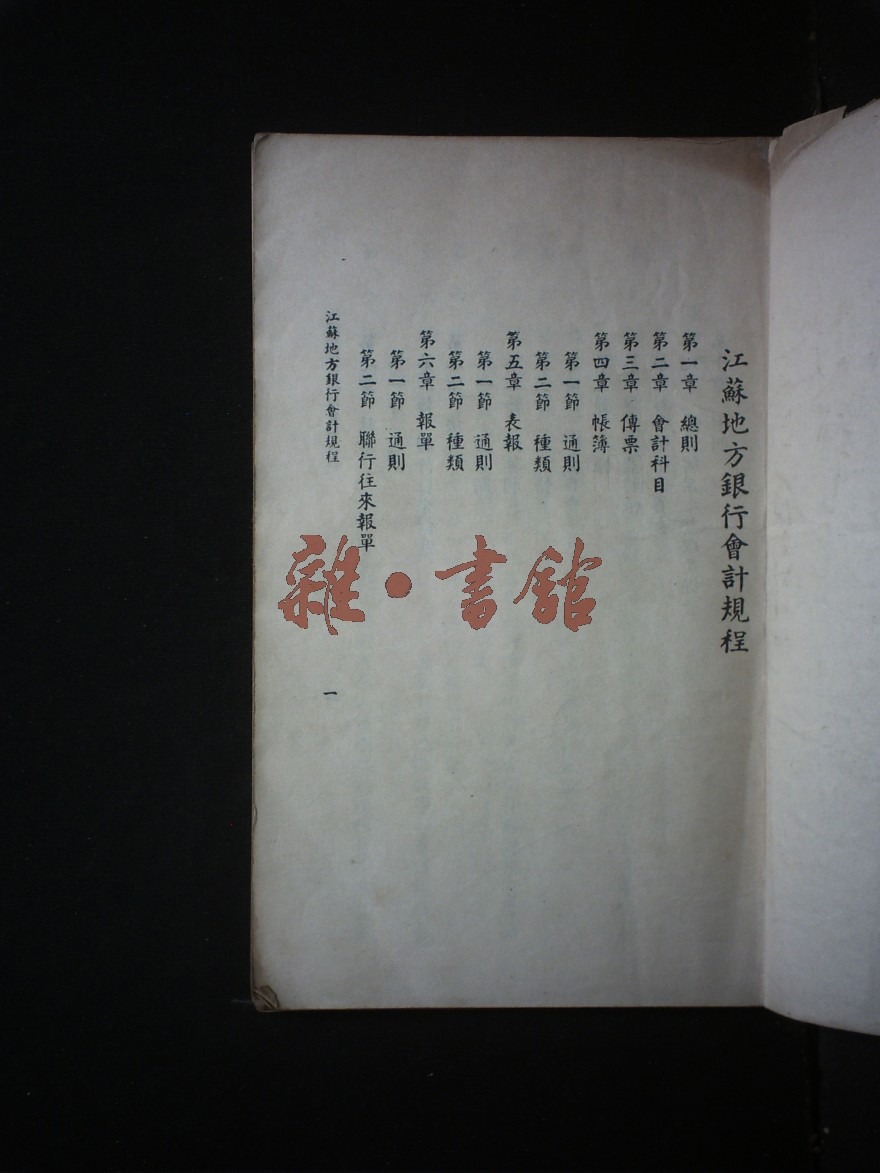 江蘇地方銀行會計規程
第一章 總則
第二章 會計科目
第三章 傳票
第四章 帳簿
第一節 通則
第二節 種類
第五章 表報
第一節 通則
第二節 種類
第六章 報單
第一節 通則
第二節 聯行往來報單
江蘇地方銀行會計規程
一
雜·書館